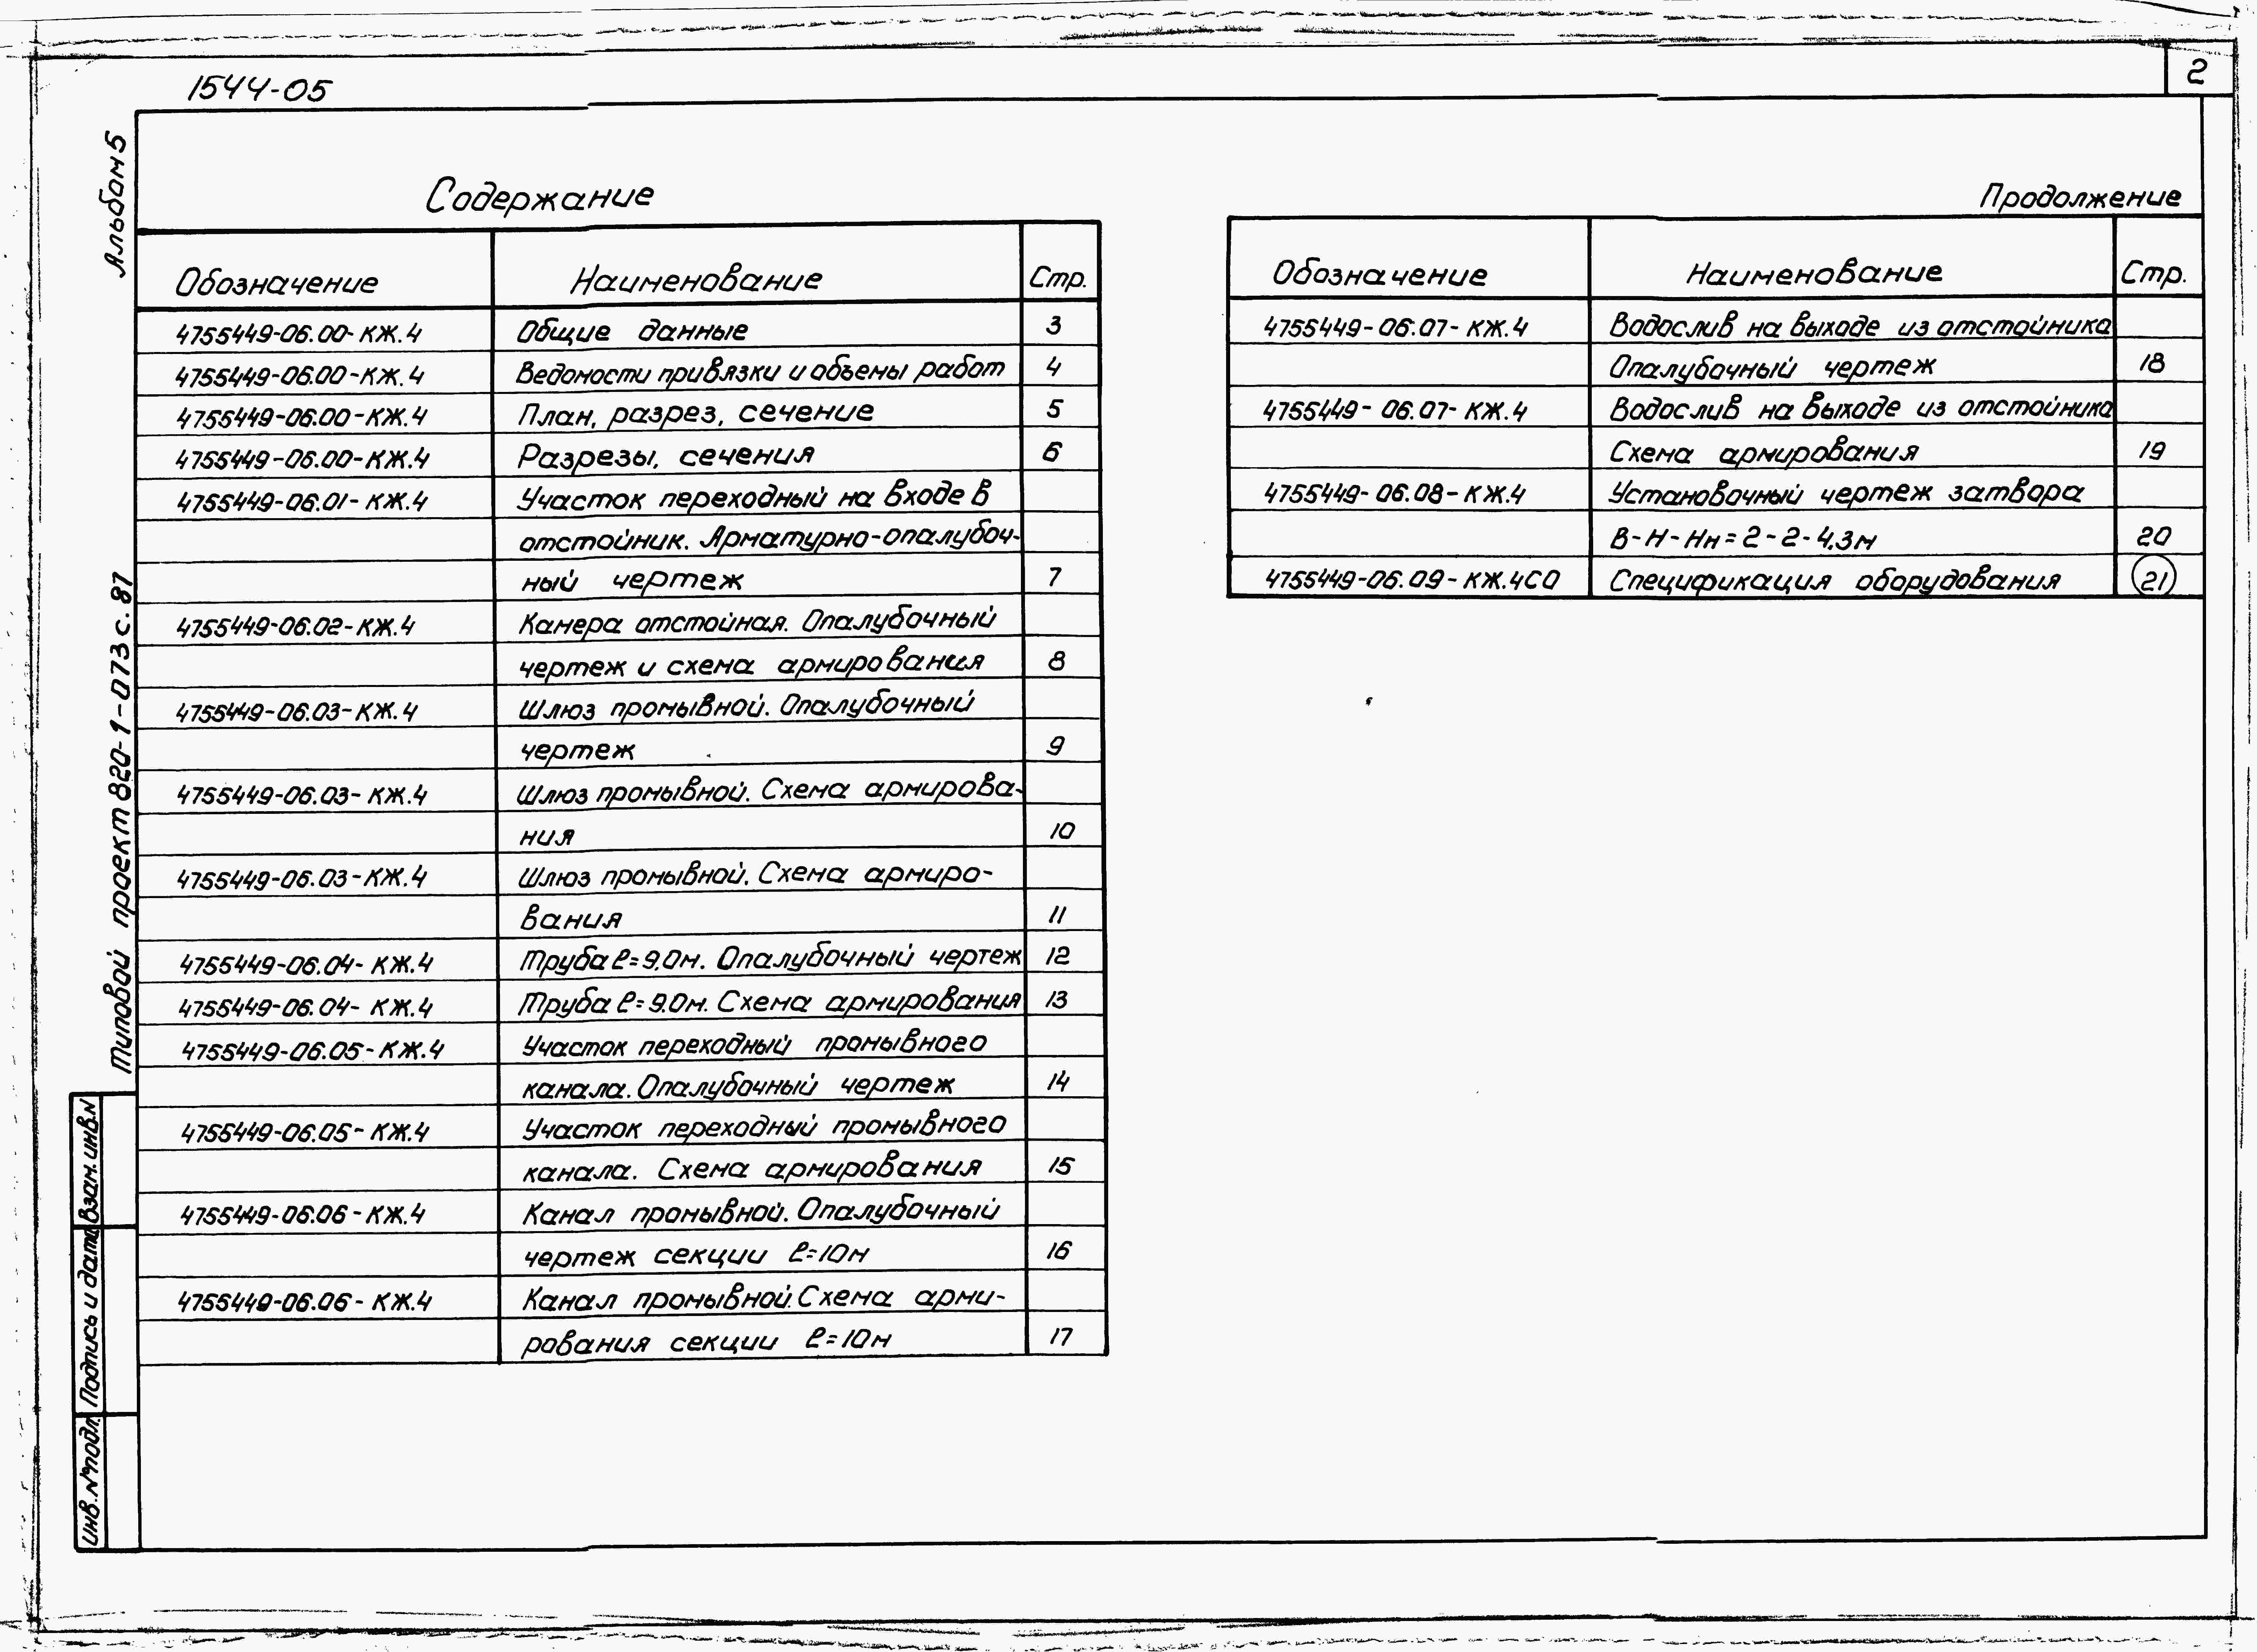 1544-05
2
Альбом 5
Типовой проект 820-1-073 с.87
Взам.инв.N
Подпись и дата
Инв.№подл.
Содержание
Обозначение Наименование Стр.
4755449-06.00-КЖ.4 Общие данные 3
4755449-06.00-КЖ.4 Ведомости привязки и объемы работ 4
4755449-06.00-КЖ.4 План, разрез, сечение 5
4755449-06.00-КЖ.4 Разрезы, сечения 6
4755449-06.01-КЖ.4 Участок переходный на входе в
отстойник. Арматурно-опалубоч-
ный чертеж 7
4755449-06.02-КЖ.4 Камера отстойная. Опалубочный
чертеж и схема армирования 8
4755449-06.03-КЖ.4 Шлюз промывной. Опалубочный
чертеж 9
4755449-06.03-КЖ.4 Шлюз промывной. Схема армирова-
ния 10
4755449-06.03-КЖ.4 Шлюз промывной. Схема армиро-
вания 11
4755449-06.04-КЖ.4 Труба ℓ=9.0м. Опалубочный чертеж 12
4755449-06.04-КЖ.4 Труба ℓ=9.0м. Схема армирования 13
4755449-06.05-КЖ.4 Участок переходный промывного
канала. Опалубочный чертеж 14
4755449-06.05-КЖ.4 Участок переходный промывного
канала. Схема армирования 15
4755449-06.06-КЖ.4 Канал промывной. Опалубочный
чертеж секции ℓ=10м 16
4755449-06.06-КЖ.4 Канал промывной. Схема арми-
рования секции ℓ=10м 17
Продолжение
Обозначение Наименование Стр.
4755449-06.07-КЖ.4 Водослив на выходе из отстойника
Опалубочный чертеж 18
4755449-06.07-КЖ.4 Водослив на выходе из отстойника
Схема армирования 19
4755449-06.08-КЖ.4 Установочный чертеж затвора
В-Н-Нн=2-2-4,3м 20
4755449-06.09-КЖ.4СО Спецификация оборудования 21